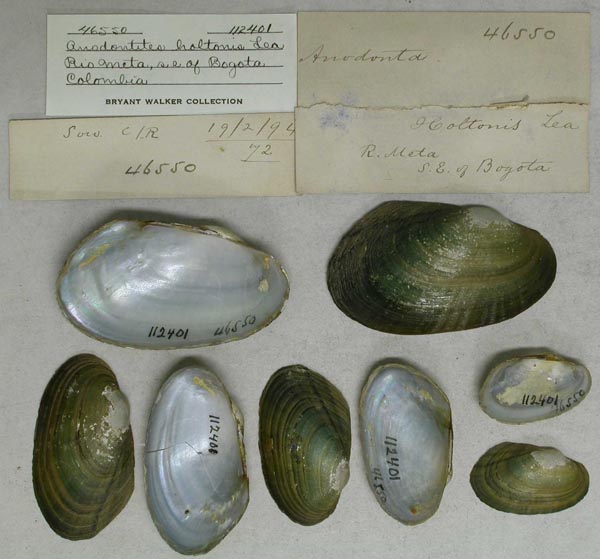 46550 112401
Anodontites holtonis Lea
Rio Meta, s.e. of Bogota
Colombia
BRYANT WALKER COLLECTION
46550
Anodonta.
Holtonis Lea
R. Meta
S.E. of Bogota
Sow. C/R 19/2/94
72
46550
112401 46550
112401
112401
46550
112401
46550